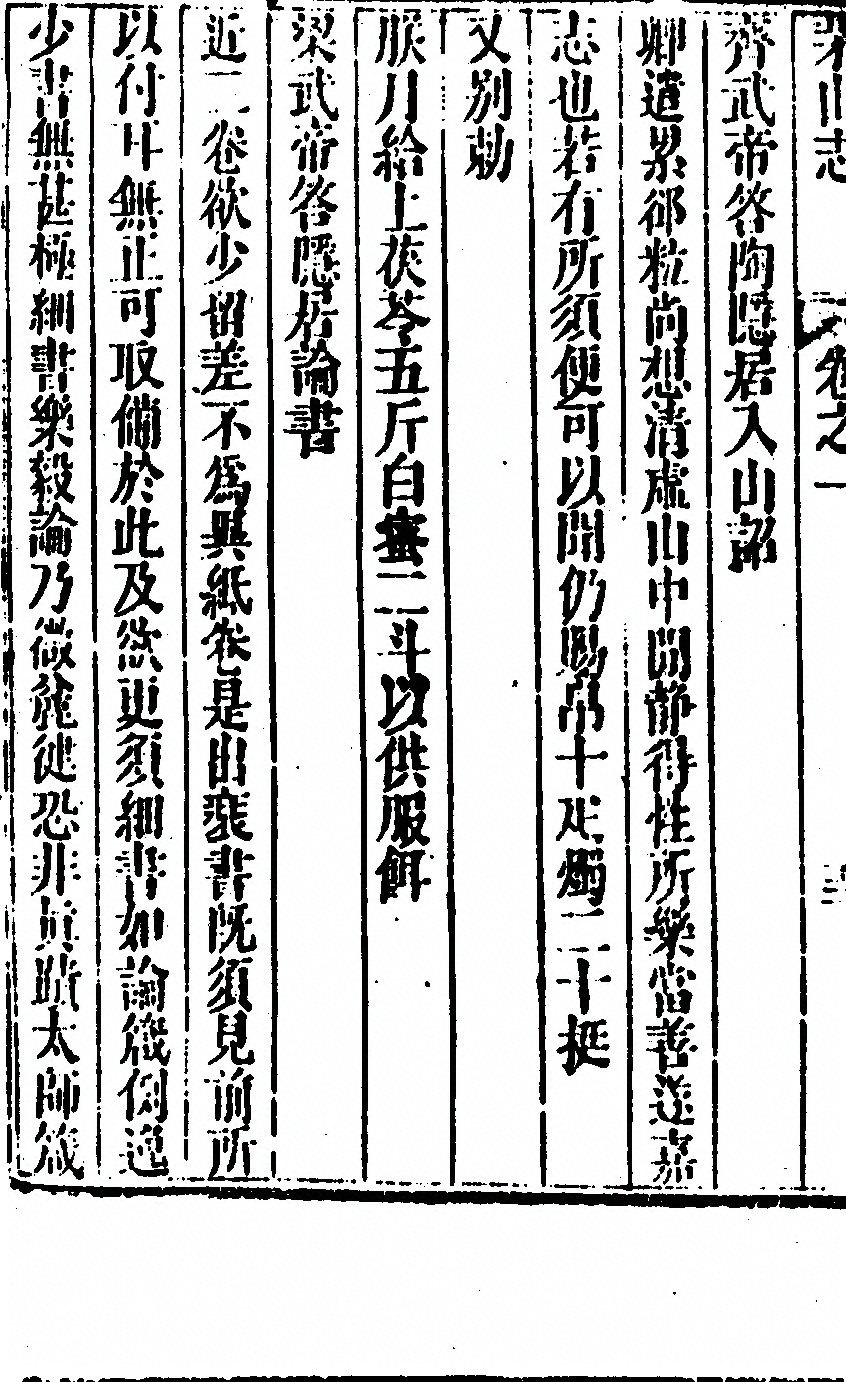 茅山志 卷之一 二
齊武帝答陶隱居入山詔
卿遣累卻粒尚想清虛山中閒靜得性所樂當善遂嘉
志也若有所須便可以聞仍賜帛十疋燭二十挺
又別勅
朕月給上茯苓五斤白蜜二斗以供服餌
梁武帝答隱居論書
近二卷欲少留差不為異紙卷是出裝書既須見前所
以付耳無正可取備於此及欲更須細書如論箴例逸
少書無甚極細書樂毅論乃微麄徤恐非真蹟太師箴